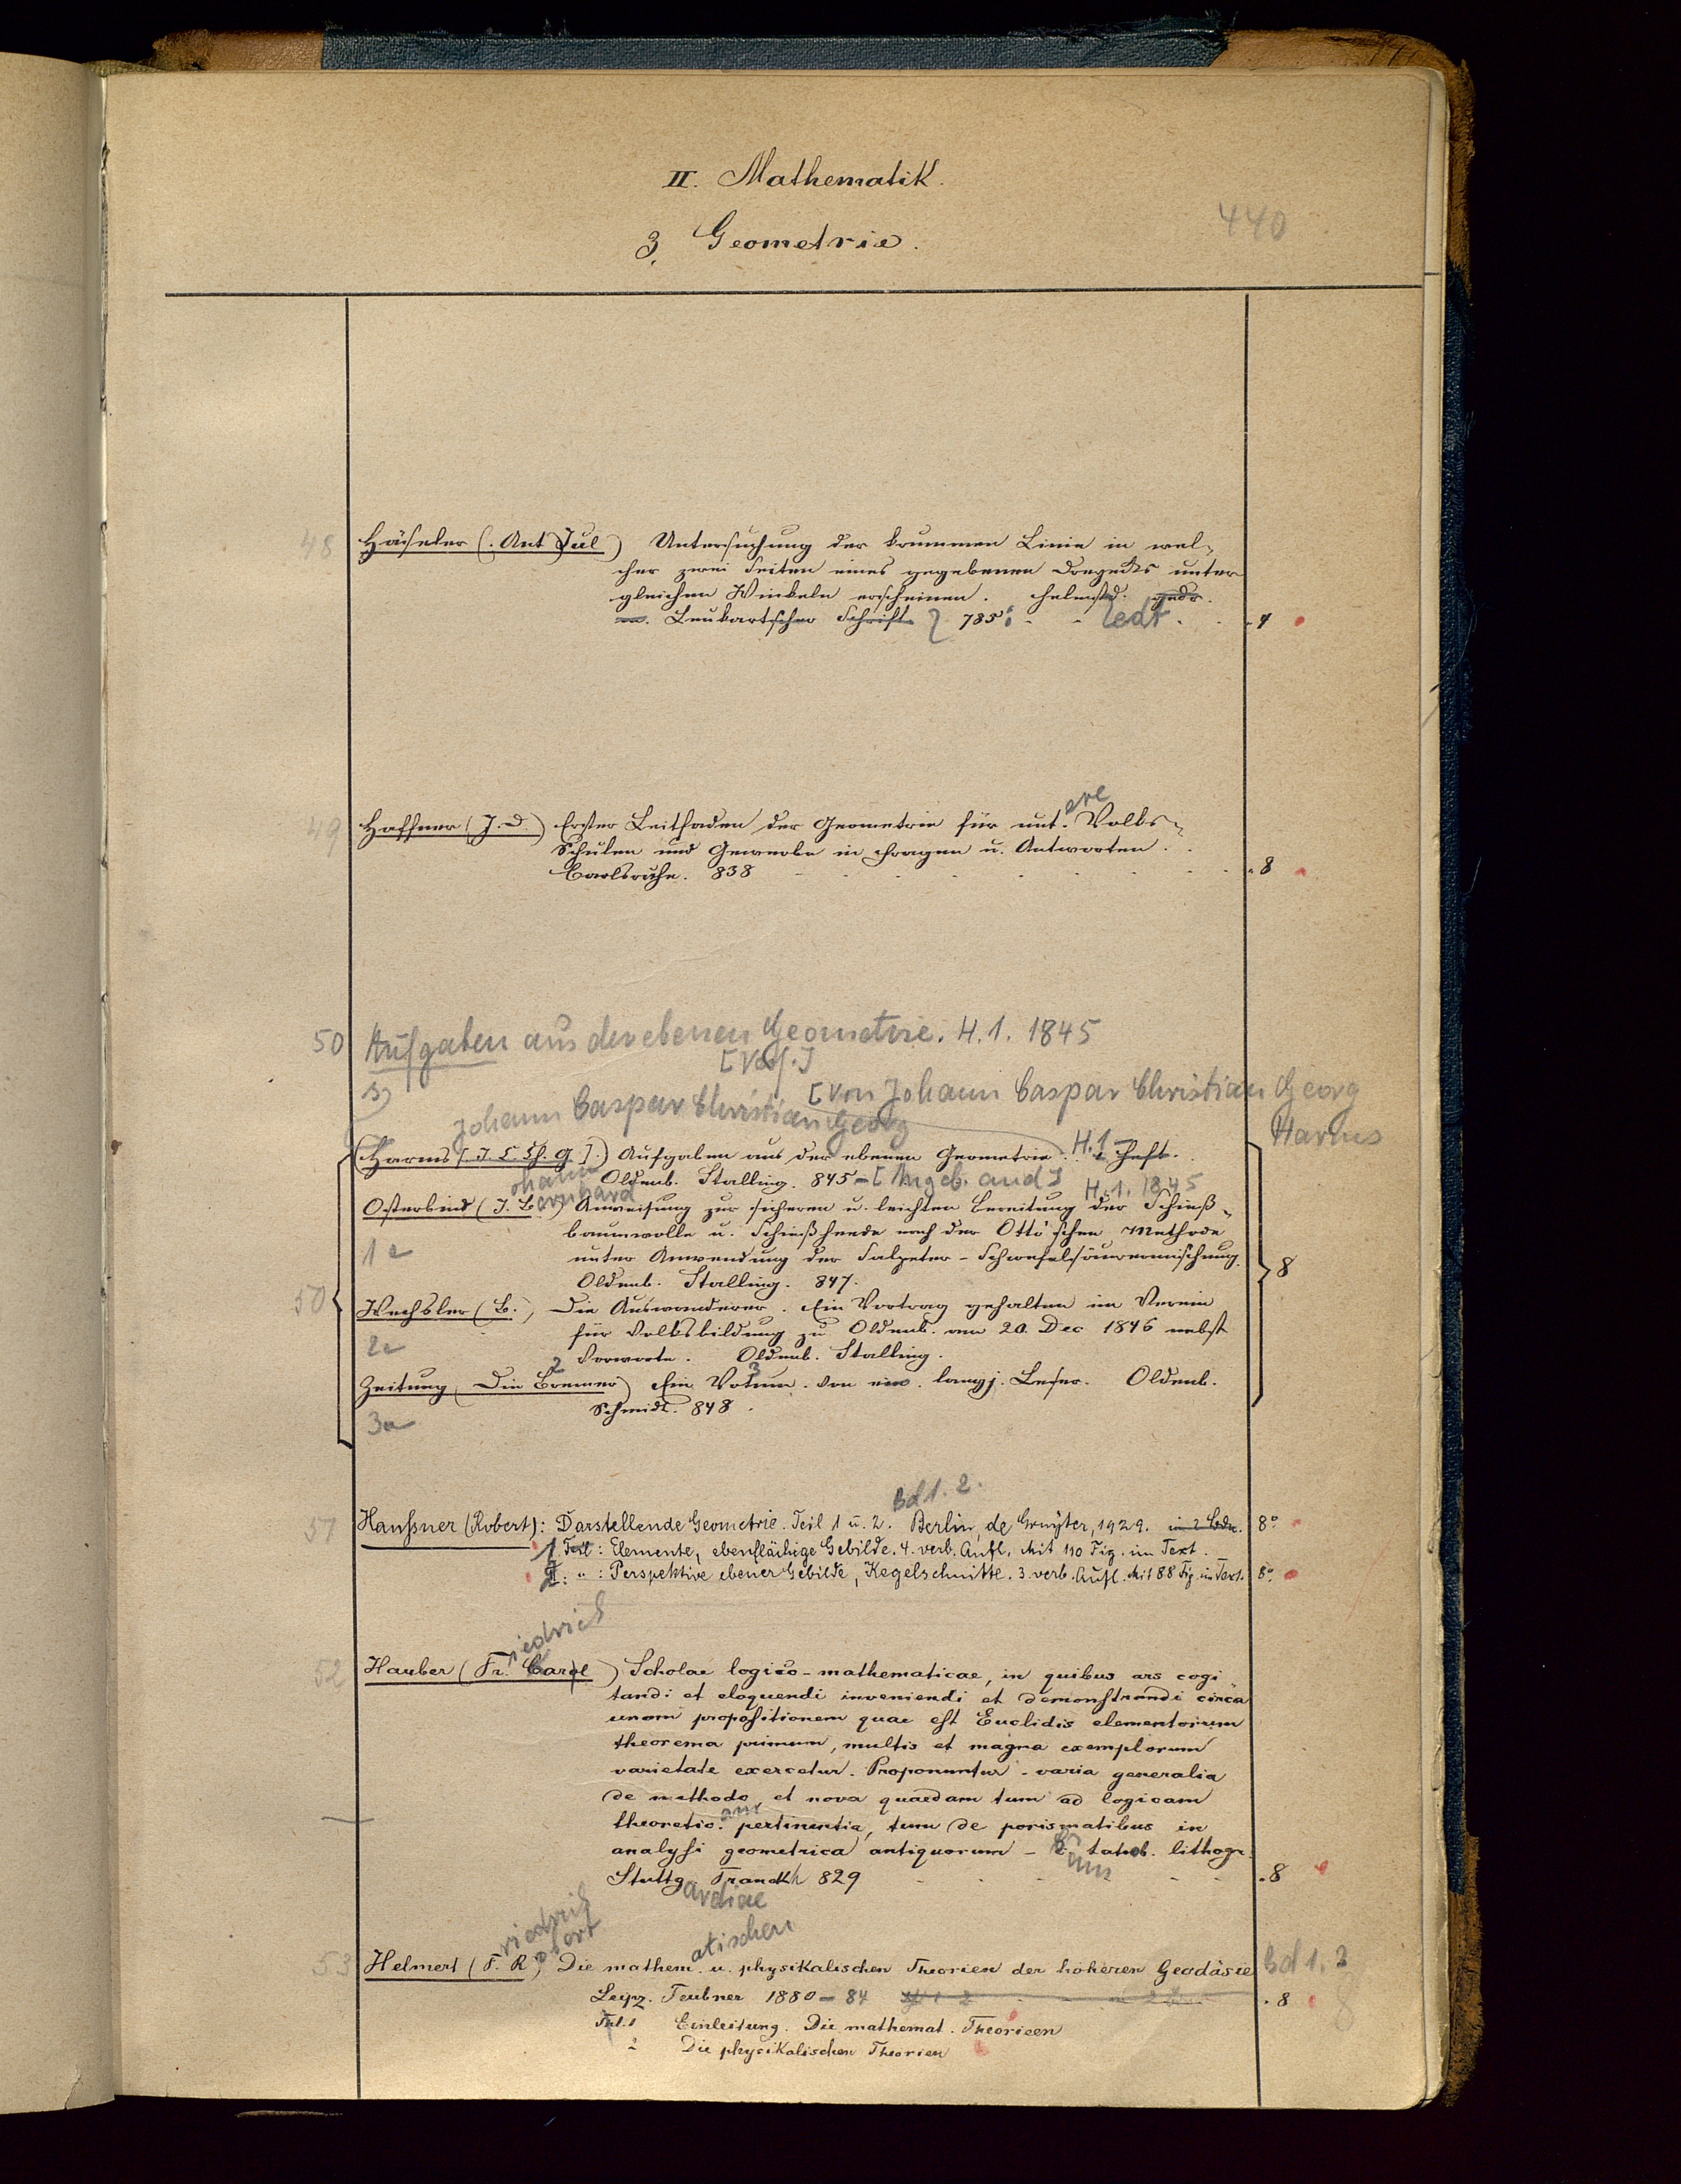 II. Mathematik.
440
3. Geometrie.
48 Häseler (. Ant Jul) Untersuchung der krummen Linie in wel-
cher zwei Seiten eines gegebenen Dreyecks unter
gleichen Winkeln erscheinen. Helmstd. gedr.
Leukartscher Schrift 785. 4
ere
49 Haffner (J. D.) Erster Leitfaden der Geometrie für unt. Volks-
Schulen und Gewerbe in Fragen u. Antworten.
Carlsruhe. 838 8
50 Aufgaben aus der ebenen Geometrie. H. 1. 1845
[Verf.]
[von Johann Caspar Christian Georg
Harms
Johann Caspar Christian Georg
(Harms [. J. C. Ch. G.].) Aufgaben aus der ebenen Geometrie. H. 1 Heft.
Oldenb. Stalling. 845 - [Angeb. and] H. 1. 1845
ohann ernhard
Osterbind (J. B.) Anweisung zur sicheren u. leichten Bereitung der Schieß-
baumwolle u. Schießheede nach der Otto'schen Methode
1a unter Anwendung der Salpeter-Schwefelsäuremischung.
Oldenb. Stalling. 847. 8
50 Wechsler (B.) Die Auswanderer. Ein Vortrag gehalten im Verein
für Volksbildung zu Oldenb. am 20. Dec 1846 nebst
2a Vorworte. Oldenb. Stalling.
2 3
Zeitung, Die Bremer) Ein Votum. von eine. langj. Leser. Oldenb.
3a Schmidt. 848.
Bd 1. 2.
51 Haußner (Robert): Darstellende Geometrie. Teil 1 u. 2. Berlin, de Gruyter, 1929. in 2 Bdn. 8°
1. Teil: Elemente, ebenflächige Gebilde. 4. verb. Aufl. Mit 110 Fig. im Text.
II. " : Perspektive ebener Gebilde, Kegelschnitte. 3. verb. Aufl. Mit 88 Fig. im Text. 8°
riedrich
52 Hauber (Fr. Carl) Scholae logico-mathematicae, in quibus ars cogi
tandi et eloquendi inveniendi et demonstrandi circa
unam propositionem quae est Euclidis elementorum
theorema primum, multis et magna exemplorum
varietate exercetur. Proponuntur varia generalia
de methodo, et nova quaedam tum ad logicam
theoretic. pertinentia, tum de porismatibus in
analysi geometrica antiquorum - tabb. lithogr.
Stuttg. Franckh 829 8
ardiae
riedrich obert atischen
53 Helmert (F. R.) Die mathem. u. physikalischen Theorien der höheren Geodäsie Bd 1. 2
Leipz. Teubner 1880 - 84 8 8
Teil. 1 Einleitung. Die mathemat. Theorieen
2 Die physikalischen Theorien